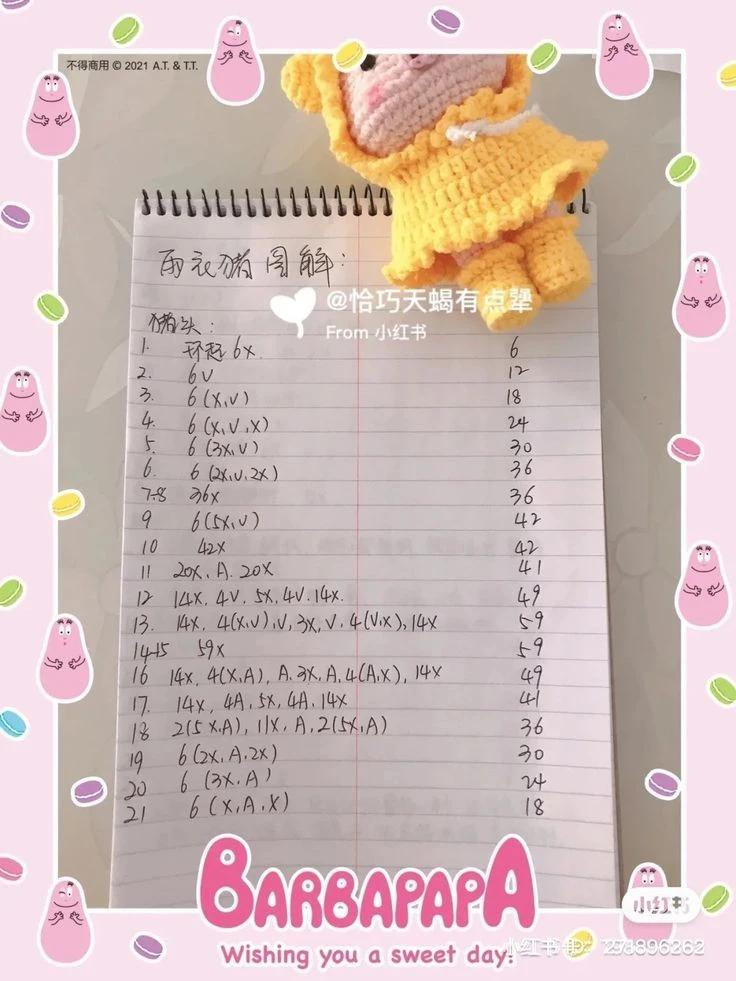 不得商用 © 2021 A.T. & T.T.
雨衣猪图解:
@恰巧天蝎有点犟
From 小红书
猪头:
1. 环起6X. 6
2. 6V 12
3. 6(X,V) 18
4. 6(X,V,X) 24
5. 6(3X,V) 30
6. 6(2X,V,2X) 36
7-8 36X 36
9 6(5X,V) 42
10 42X 42
11 20X, A. 20X 41
12 14X, 4V, 5X, 4V. 14X. 49
13. 14X, 4(X,V),V, 3X, V, 4(V,X), 14X 59
14-15 59X 59
16 14X, 4(X,A), A. 3X, A, 4(A,X), 14X 49
17. 14X, 4A, 5X, 4A, 14X 41
18 2(5X,A), 11X, A, 2(5X,A) 36
19 6(2X,A,2X) 30
20 6(3X,A) 24
21 6(X,A,X) 18
BARBAPAPA
Wishing you a sweet day!
小红书